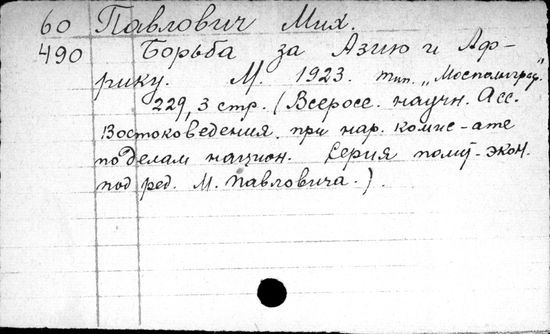 60 Павлович Мих.
490 Борьба за Азию и Аф-
рику. М. 1923. тип. „Мосполиграф."
229, 3 стр. (Всеросс. научн. Асс.
Востоковедения при нар. комис-ате
по делам национ. Серия полит-экон.
под ред. М. Павловича.).